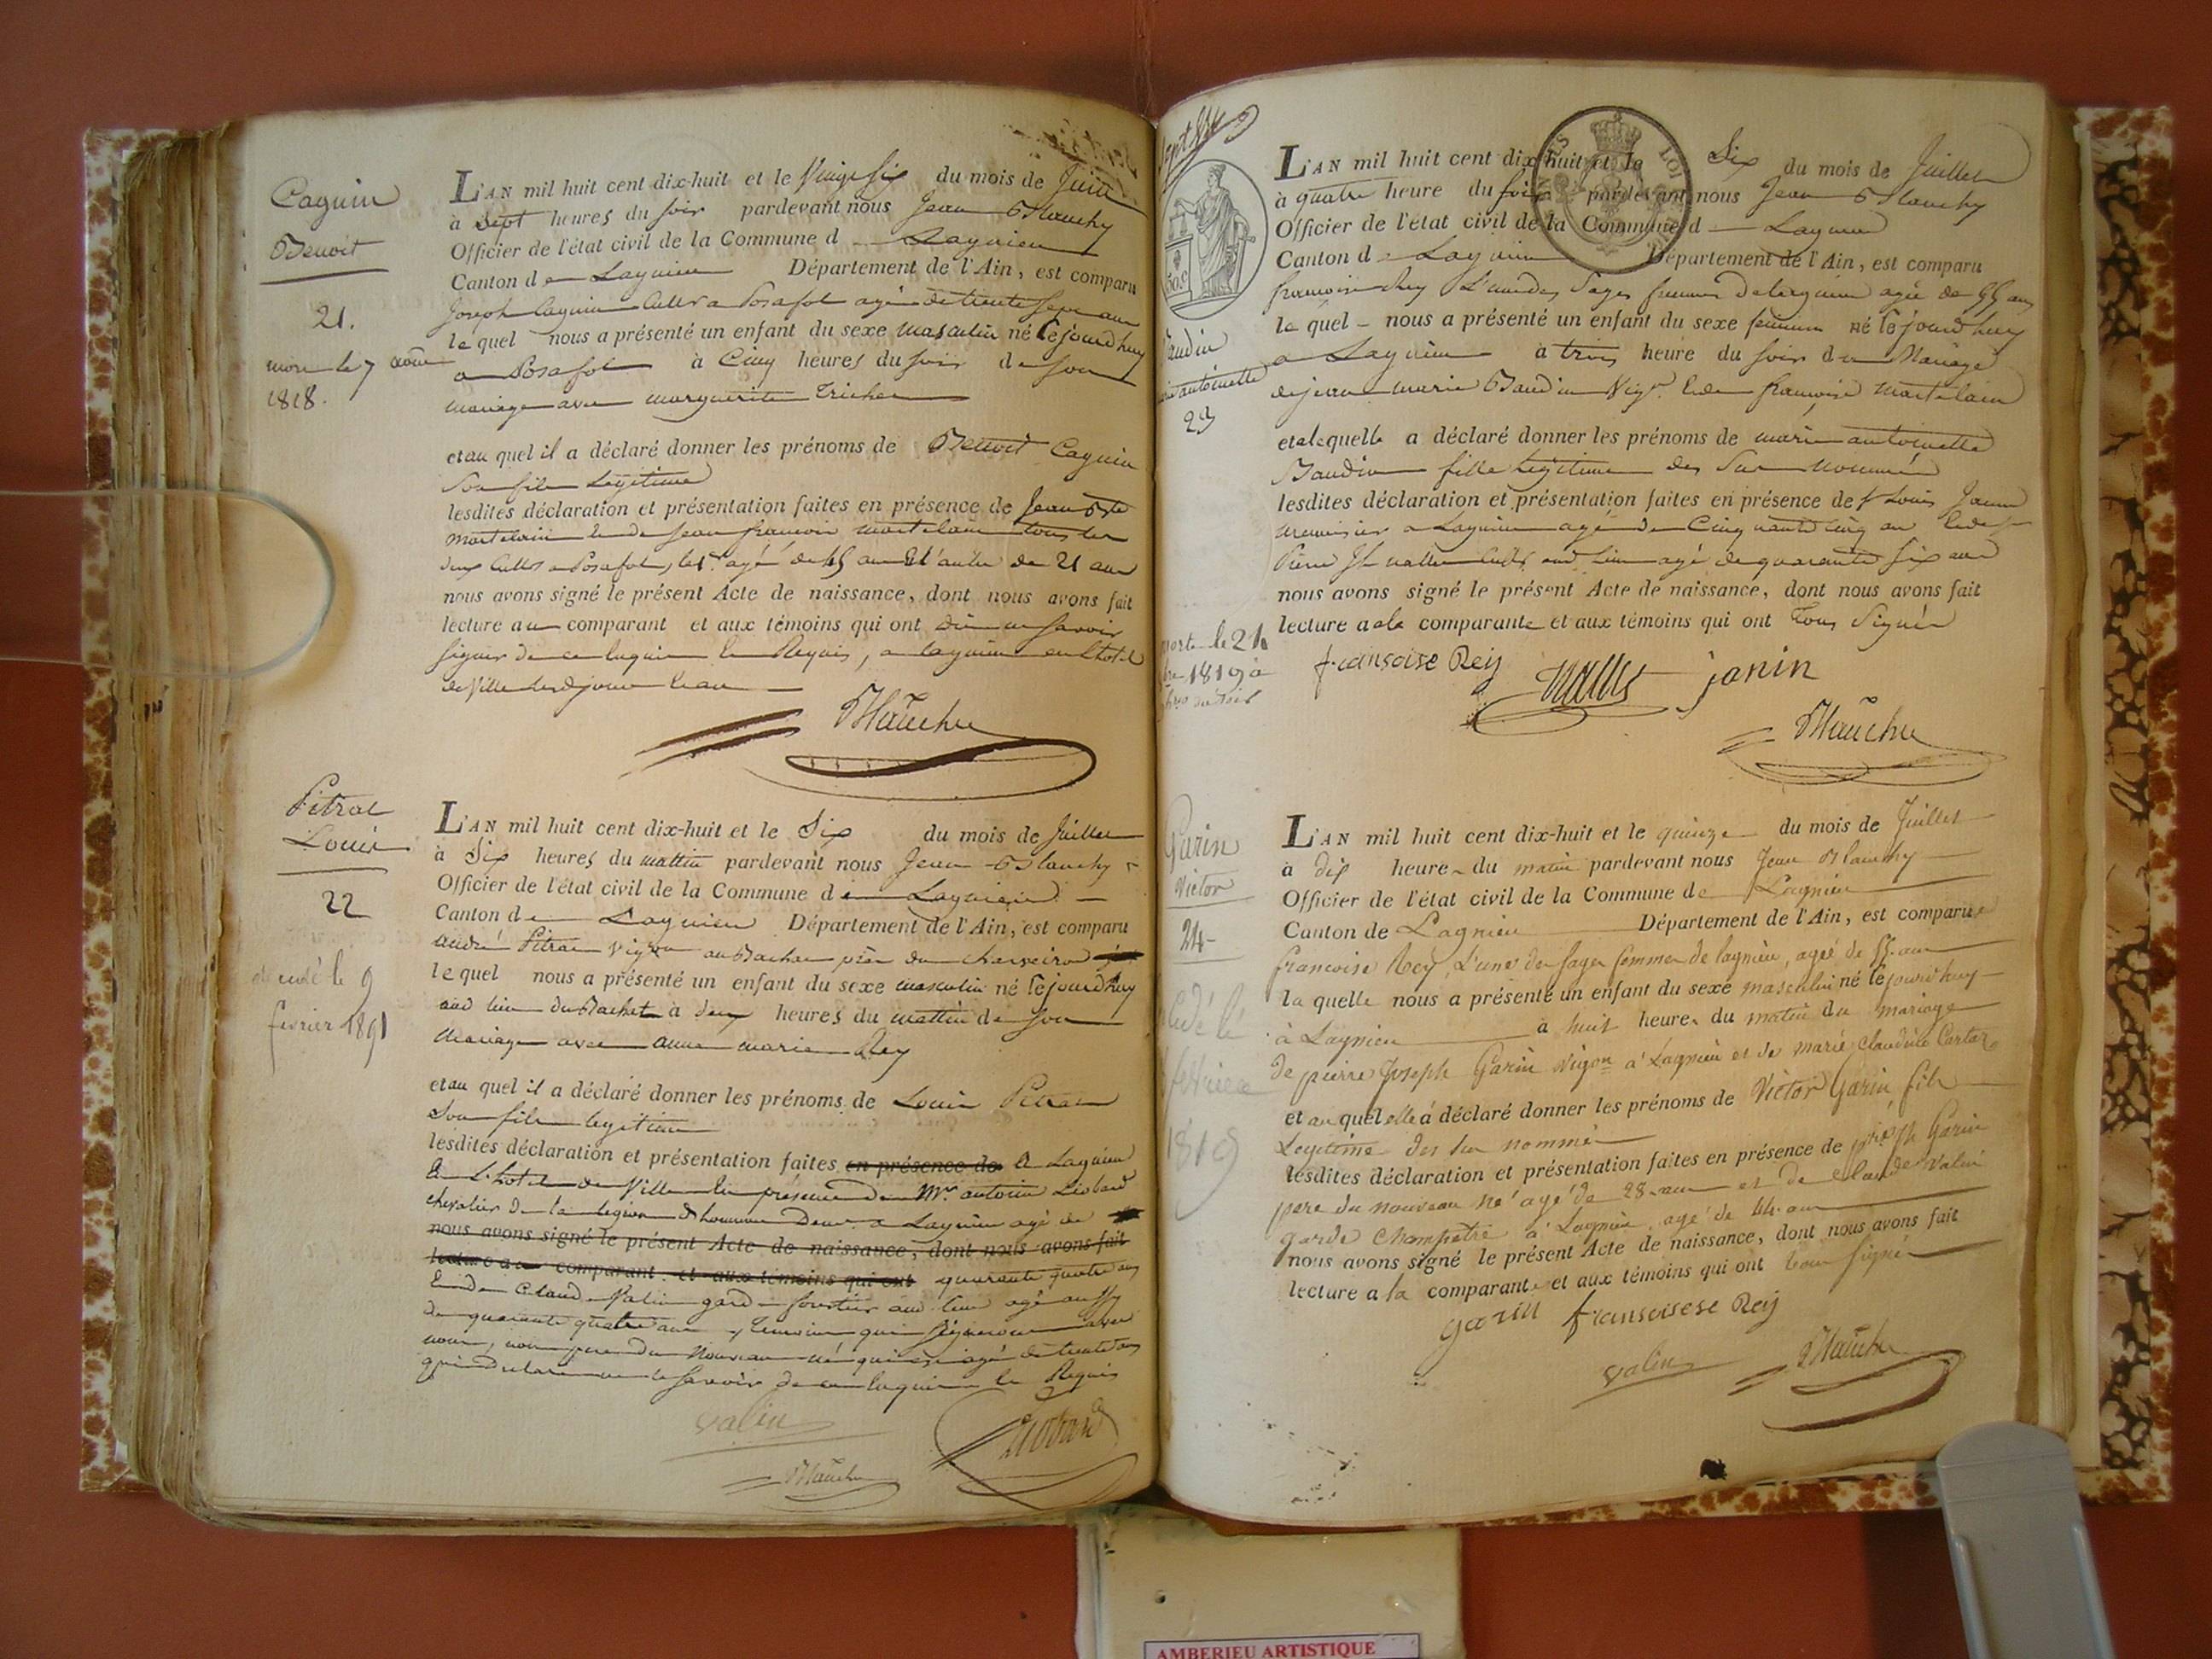 Caguin
Benoit
21.
mort le 7 août
1818.
L'AN mil huit cent dix-huit et le Vingt six du mois de Juin
à Sept heures du soir pardevant nous Jean Blanchy
Officier de l'état civil de la Commune d Lagnieu
Canton de Lagnieu Département de l'Ain, est comparu
Joseph Caguin Cultr a Posafol agé de trente sept ans
le quel nous a présenté un enfant du sexe masculin né cejourd'huy
a Posafol à Cinq heures du soir de son
mariage avec marguerite Tricher
et au quel il a déclaré donner les prénoms de Benoit Caguin
son fils Légitime
lesdites déclaration et présentation faites en présence de Jean Bte
martelain & de Jean françois martelain tous les
deux Cultrs a Posafol, le 1er agé de 45 ans & l'autre de 21 ans
nous avons signé le présent Acte de naissance, dont nous avons fait
lecture au comparant et aux témoins qui ont dit ne savoir
signer de ce Enquis & Requis, a Lagnieu en L'hotel
de Ville lesd jour & an
Blanchy
Pitrat
Louis
22
décédé le 9
février 1891
L'AN mil huit cent dix-huit et le Six du mois de Juillet
à Six heures du mattin pardevant nous Jean Blanchy
Officier de l'état civil de la Commune de Lagnieu
Canton de Lagnieu Département de l'Ain, est comparu
André Pitrat Vigron au Bachat
le quel nous a présenté un enfant du sexe masculin né cejourd'huy
aud lieu du Bachet à deux heures du mattin de son
Mariage avec anne marie Rey
et au quel il a déclaré donner les prénoms de Louis Pitrat
son fils legitime
lesdites déclaration et présentation faites en présence de A Lagnieu
En L'hotel de Ville En présence de Mr antoine Liobard
chevalier de la legion d'honneur demt a Lagnieu agé de
nous avons signé le présent Acte de naissance, dont nous avons fait
lecture au comparant et aux témoins qui ont quarante quatre ans
& de Claude Valin garde forestier aud lieu agé aussy
de quarante quatre ans, temoins qui signeront avec
nous, non pere du Nouveau né qui est agé de trente ans
qui a declaré ne le savoir de ce Enquis & Requis
valin
Liobard
Blanchy
Sept 814
50 c
Baudin
marie antoinette
23
morte le 21
1819 à
hres du soir
L'AN mil huit cent dix-huit et le Six du mois de Juillet
à quatre heure du soir pardevant nous Jean Blanchy
Officier de l'état civil de la Commune d Lagnieu
Canton d Lagnieu Département de l'Ain, est comparu
françoise Rey L'une des Sages femmes de Lagnieu agée de 55 ans
la quel nous a présenté un enfant du sexe feminin né cejourd'huy
a Lagnieu à trois heure du soir du Mariage
de jean marie Baudin Vigr. & de françoise martelain
et a lequelle a déclaré donner les prénoms de marie antoinette
Baudin fille legitime des Sus nommés
lesdites déclaration et présentation faites en présence de Sr Louis Janin
menuisier a Lagnieu agé de Cinquante cinq ans & de Sr
Pierre Jh nallet Cultr aud lieu agé de quarante six ans
nous avons signé le présent Acte de naissance, dont nous avons fait
lecture a la comparante et aux témoins qui ont Tous Signés
fransoise Reij
nallet
janin
Blanchy
Garin
Victor
24
décédé le
février
1819
L'AN mil huit cent dix-huit et le quinze du mois de Juillet
à dix heure du matin pardevant nous Jean Blanchy
Officier de l'état civil de la Commune de Lagnieu
Canton de Lagnieu Département de l'Ain, est comparue
françoise Rey, L'une des sages femmes de lagnieu, agée de 55 ans
la quelle nous a présenté un enfant du sexe masculin né cejourd'huy
à Lagnieu à huit heure du matin du mariage
de pierre Joseph Garin vigon à Lagnieu et de marie Claudine Cartaz
et au quel elle a déclaré donner les prénoms de Victor Garin, fils
Legitime des sus nommés
lesdites déclaration et présentation faites en présence de pre jh Garin
pere du nouveau né agé de 28 ans et de claude valin
garde champetre à Lagnieu, agé de 44 ans
nous avons signé le présent Acte de naissance, dont nous avons fait
lecture a la comparante et aux témoins qui ont tous signé
garin fransoisese Reij
valin
Blanchy
AMBERIEU ARTISTIQUE